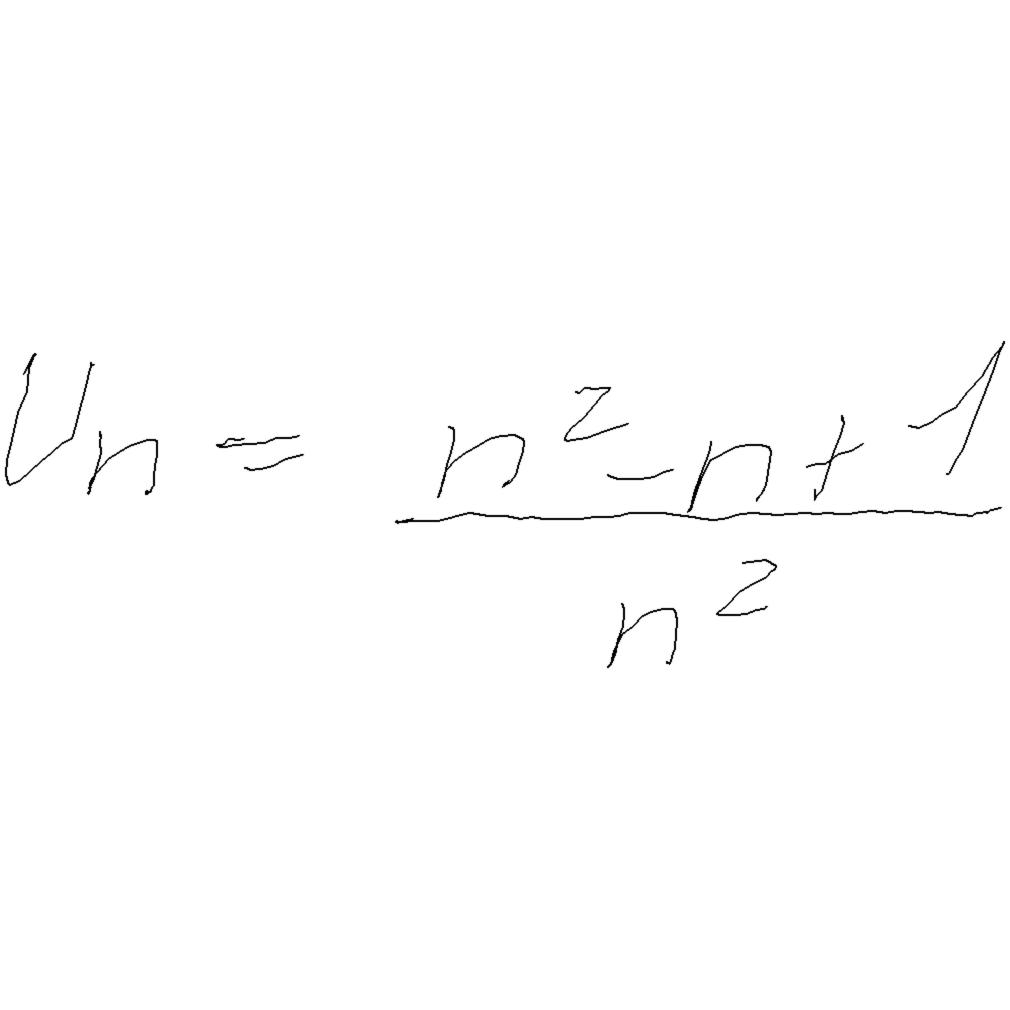 Un = n² - n + 1
n²